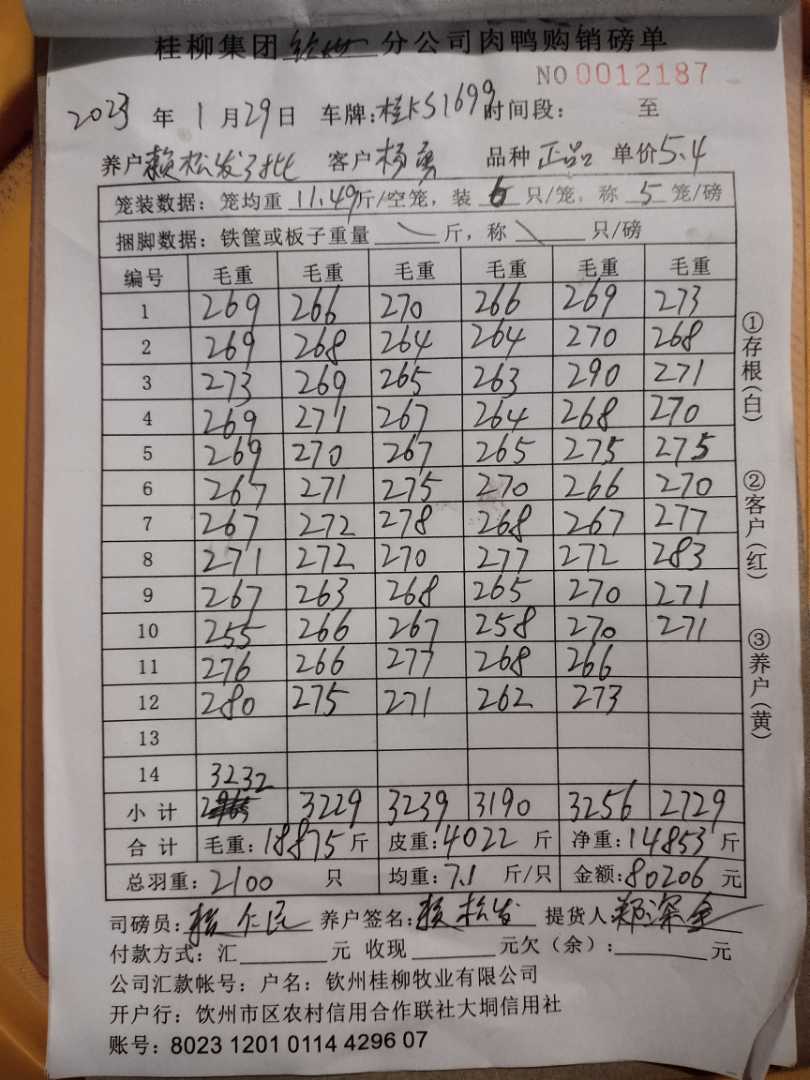 桂柳集团钦州分公司肉鸭购销磅单
NO 0012187
2023 年 1 月 29 日 车牌:桂KS1699 时间段: 至
养户 赖松发 客户 杨勇 品种 正品 单价 5.4
笼装数据: 笼均重 11.49 斤/空笼, 装 6 只/笼, 称 5 笼/磅
捆脚数据: 铁筐或板子重量 斤, 称 只/磅
编号 毛重 毛重 毛重 毛重 毛重 毛重
1 269 266 270 266 269 273
2 269 268 264 264 270 268
3 273 269 265 263 290 271
4 269 271 267 264 268 270
5 269 270 267 265 275 275
6 267 271 275 270 266 270
7 267 272 278 268 267 277
8 271 272 270 277 272 283
9 267 263 268 265 270 271
10 255 266 267 258 270 271
11 276 266 277 268 266
12 280 275 271 262 273
13
14 3232
小计 3229 3239 3190 3256 2729
合计 毛重: 18875 斤 皮重: 4022 斤 净重: 14853 斤
总羽重: 2100 只 均重: 7.1 斤/只 金额: 80206 元
司磅员: 养户签名: 赖松发 提货人 郑深
付款方式: 汇 元 收现 元欠(余): 元
公司汇款帐号: 户名: 钦州桂柳牧业有限公司
开户行: 饮州市区农村信用合作联社大垌信用社
账号: 8023 1201 0114 4296 07
①存根(白)
②客户(红)
③养户(黄)